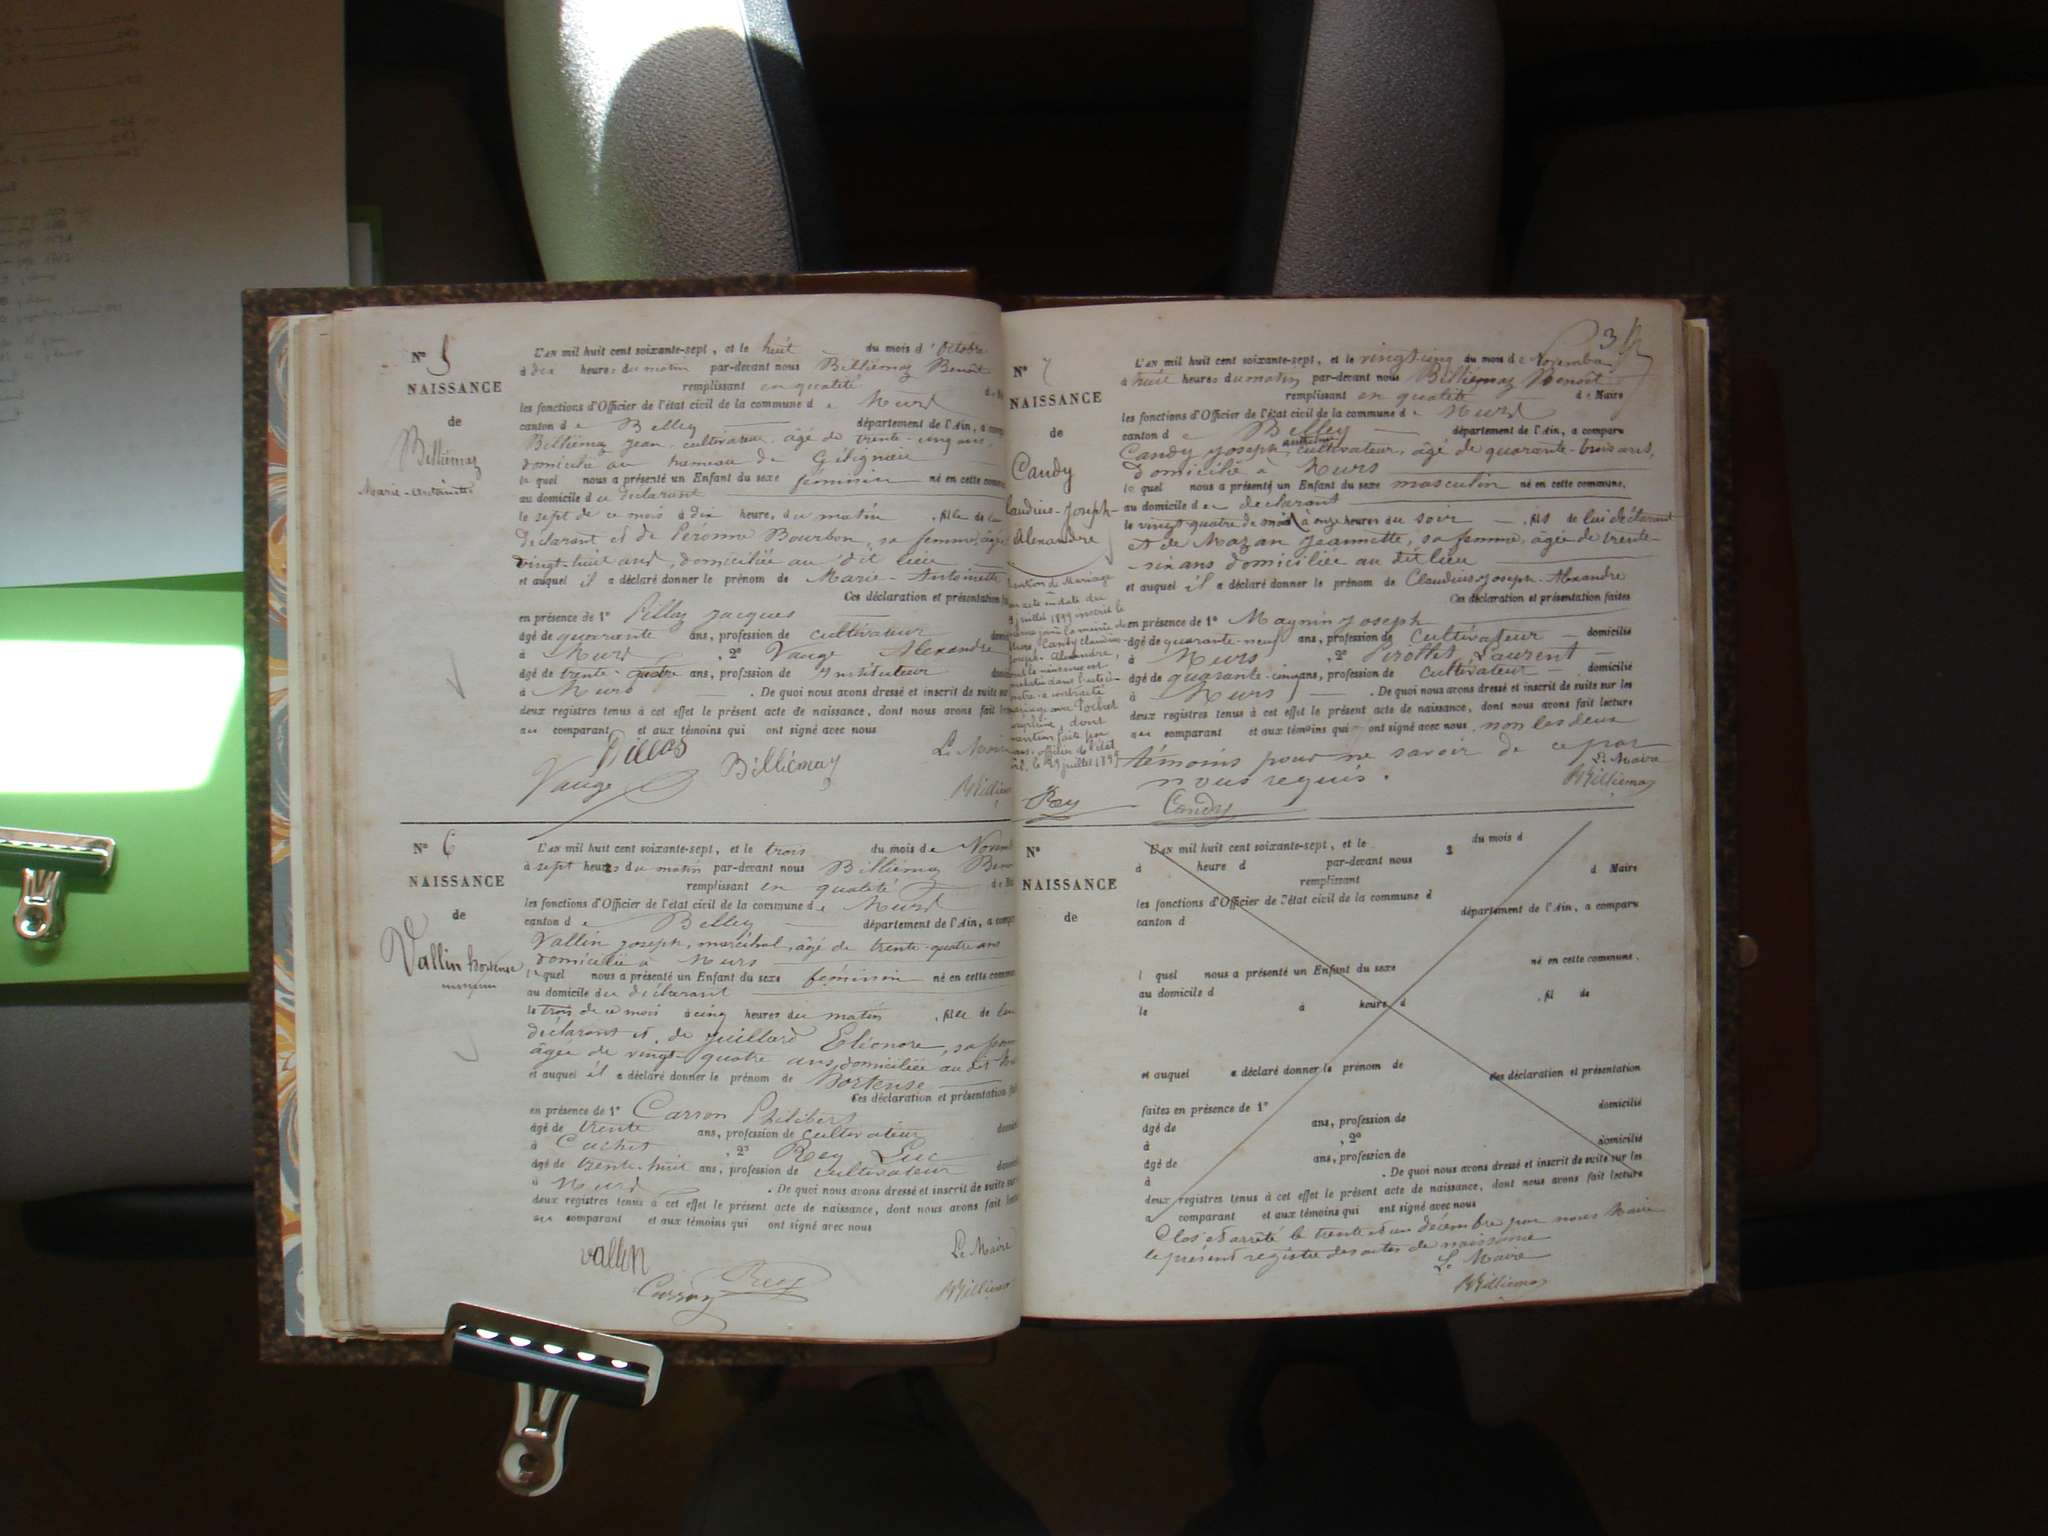 Nº 5
NAISSANCE
de
Billiémaz
Marie-Antoinette
L'AN mil huit cent soixante-sept, et le huit du mois d'Octobre
à dix heures du matin par-devant nous Billiémaz Benoît
remplissant en qualité
les fonctions d'Officier de l'état civil de la commune de Murs
canton de Belley département de l'Ain, a comp
Billiémaz Jean, cultivateur, âgé de trente-cinq ans,
domicilié au hameau de
lequel nous a présenté un Enfant du sexe féminin né en cette commu
au domicile du déclarant
le sept de ce mois à dix heures du matin, fille de lui
déclarant et de Péronne Bourbon, sa femme, âgée
vingt-huit ans, domiciliée au dit lieu
et auquel il a déclaré donner le prénom de Marie-Antoinette
Ces déclaration et présentation
en présence de 1º Pillaz Jacques
âgé de quarante ans, profession de cultivateur
à Murs, 2º Vauge Alexandre
âgé de trente-quatre ans, profession de Instituteur
à Murs. De quoi nous avons dressé et inscrit de suite sur
deux registres tenus à cet effet le présent acte de naissance, dont nous avons fait
au comparant et aux témoins qui ont signé avec nous
Vauge Billiémaz Le Maire
Nº 6
NAISSANCE
de
Vallin hortense
L'AN mil huit cent soixante-sept, et le trois du mois de Novemb
à sept heures du matin par-devant nous Billiémaz Beno
remplissant en qualité
les fonctions d'Officier de l'état civil de la commune de Murs
canton de Belley département de l'Ain, a comp
Vallin Joseph, maréchal, âgé de trente-quatre ans
domicilié à Murs
lequel nous a présenté un Enfant du sexe féminin né en cette commu
au domicile du déclarant
le trois de ce mois à cinq heures du matin, fille de lui
déclarant et de Juillard Eléonore, sa femm
âgée de vingt-quatre ans, domiciliée au dit
et auquel il a déclaré donner le prénom de Hortense
Ces déclaration et présentation
en présence de 1º Carron Philibert
âgé de trente ans, profession de cultivateur
à, 2º Rey Luc
âgé de trente-huit ans, profession de cultivateur
à Murs. De quoi nous avons dressé et inscrit de suite sur
deux registres tenus à cet effet le présent acte de naissance, dont nous avons fait
au comparant et aux témoins qui ont signé avec nous
vallin Le Maire
Carron Rey Billiémaz
Nº 7
NAISSANCE
de
Candy
Claudius-Joseph-
Alexandre
L'AN mil huit cent soixante-sept, et le vingt-cinq du mois de Novembre
à huit heures du matin par-devant nous Billiémaz Benoît
remplissant en qualité de Maire
les fonctions d'Officier de l'état civil de la commune de Murs
canton de Belley département de l'Ain, a comparu
Candy Joseph, cultivateur, âgé de quarante-trois ans,
domicilié à Murs
lequel nous a présenté un Enfant du sexe masculin né en cette commune,
au domicile du déclarant
le vingt-quatre de mois à onze heures du soir, fils de lui déclarant
et de Mazan Jeannette, sa femme, âgée de trente
-six ans domiciliée au dit lieu
et auquel il a déclaré donner le prénom de Claudius-Joseph-Alexandre
Ces déclaration et présentation faites
en présence de 1º Maynin Joseph
âgé de quarante-neuf ans, profession de cultivateur domicilié
à Murs, 2º Perottet Laurent
âgé de quarante-cinq ans, profession de cultivateur domicilié
à Murs. De quoi nous avons dressé et inscrit de suite sur les
deux registres tenus à cet effet le présent acte de naissance, dont nous avons fait lecture
au comparant et aux témoins qui ont signé avec nous, non les deux
témoins pour ne savoir de ce par
nous requis. Le Maire
Candy Billiémaz
Mention de Mariage
juillet 1899 inscrit le
Candy Claudius-
Joseph-Alexandre,
contracté
mariage avec
, dont
mention faite par
nous, officier de l'état
civil, le 29 juillet 1899
Rey
Nº
NAISSANCE
de
L'AN mil huit cent soixante-sept, et le du mois d
à heure d par-devant nous
remplissant d Maire
les fonctions d'Officier de l'état civil de la commune d
canton d département de l'Ain, a comparu
l quel nous a présenté un Enfant du sexe né en cette commune,
au domicile d
le à heure d, fil de
et auquel a déclaré donner le prénom de
Ces déclaration et présentation
faites en présence de 1º
âgé de ans, profession de domicilié
à, 2º
âgé de ans, profession de domicilié
à. De quoi nous avons dressé et inscrit de suite sur les
deux registres tenus à cet effet le présent acte de naissance, dont nous avons fait lecture
a comparant et aux témoins qui ont signé avec nous
Clos et arrêté le trente et un décembre par nous Maire
le présent registre des actes de naissance
Le Maire
Billiémaz